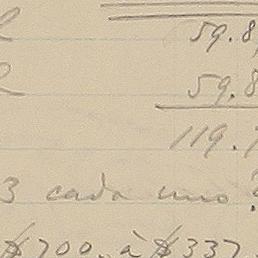 59.8
59.8
119.
3 cada uno
$700. à $337.